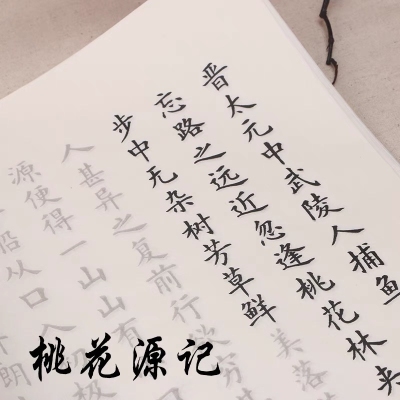 晋太元中武陵人捕鱼
忘路之远近忽逢桃花林夹
步中无杂树芳草鲜美落
人甚异之复前行欲穷
源便得一山山有
从口入初极
朗
桃花源记